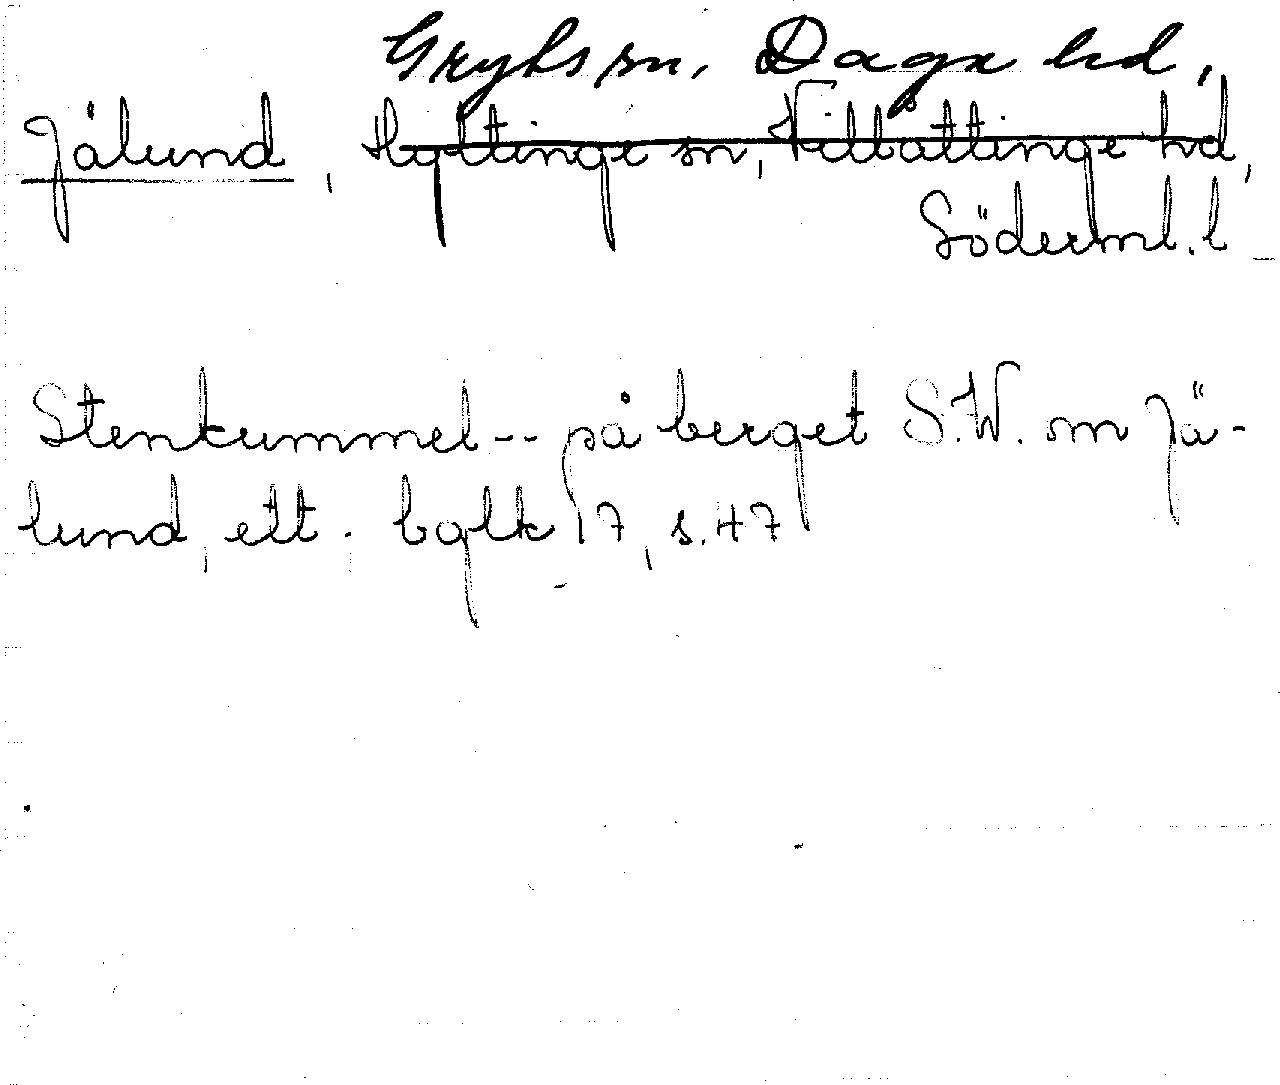 Gryts sn, Daga hd,
Jälund, Hyltinge sn, Villåttinge hd,
Söderml. l
Stenkummel -- på berget S.W. m Jä-
lund, ett. bglk 17, s. 47